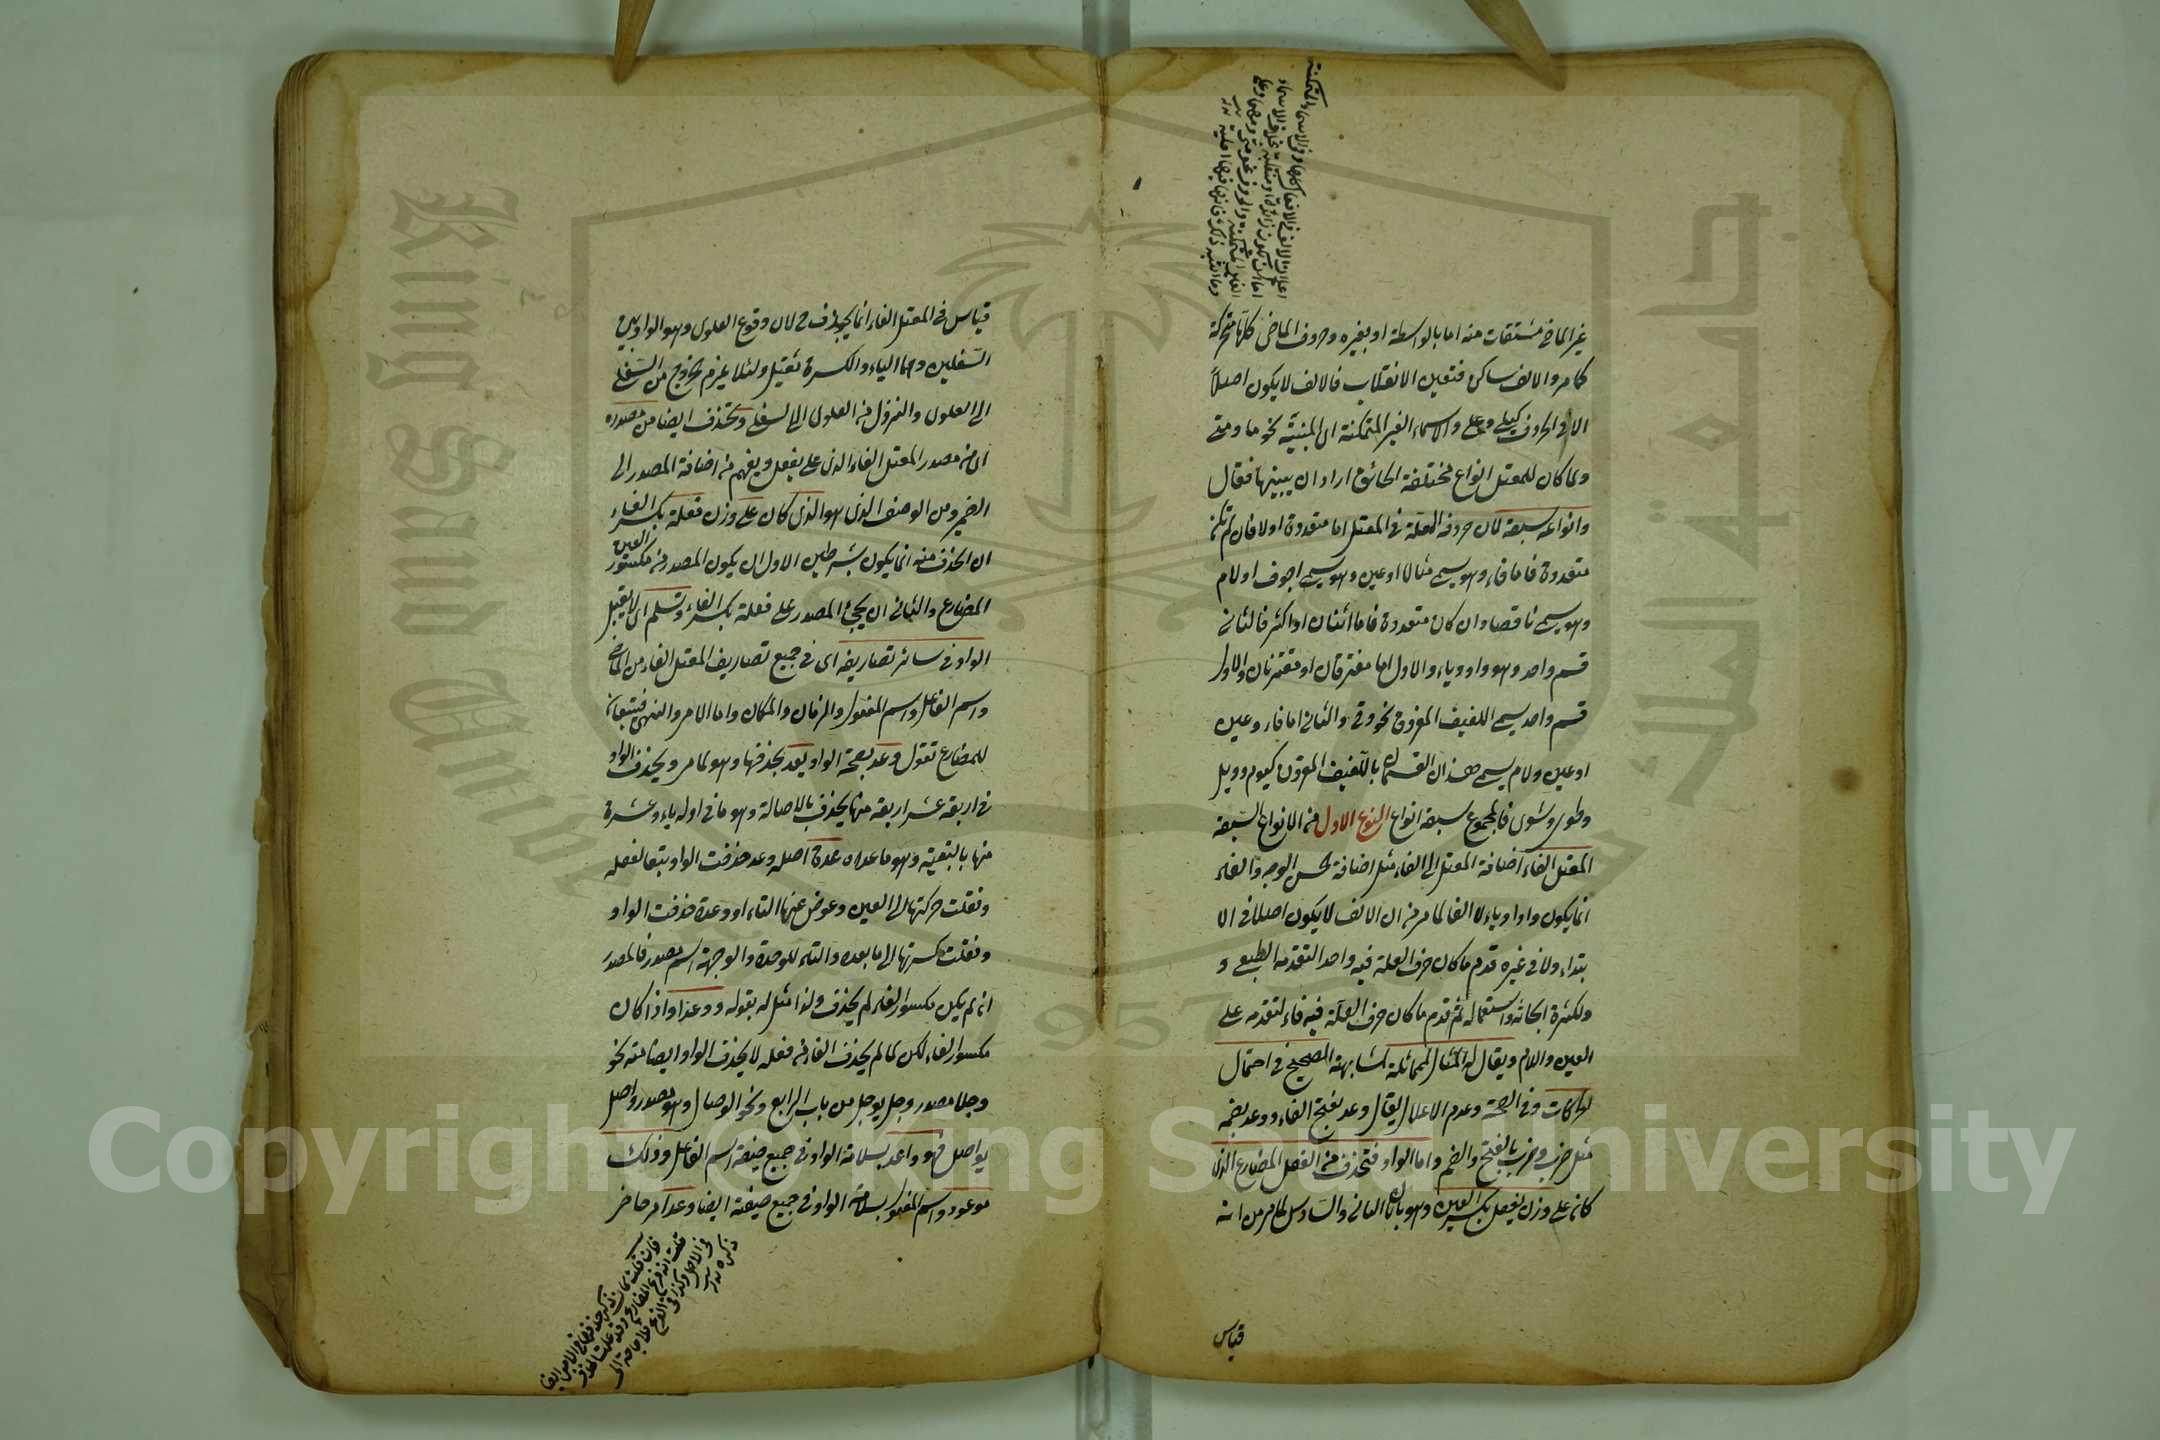 غير الماضى مشتقات منه اما بالواسطة او بغيره وحروف الماضى كلها متحركة
كما مر والالف ساكن فتعين الانقلاب فالالف لا يكون اصلاً
الا فى الحروف كبلى وعلى والاسماء الغير المتمكنة اى المبنية نحو ما ومتى
ولما كان للمعتل انواع مختلفة الحقائق اراد ان يبينها فقال
وانواعه سبعة لان حروف العلة فى المعتل اما متعددة اولا فان لم تكن
متعددة فاما فاء وهو يسمى مثالا او عين وهو يسمى اجوف او لام
وهو يسمى ناقصا وان كان متعددة فاما اثنان او اكثر فالثانى
قسم واحد وهو واو وياء والاول اما مفترقان او مقترنان والاول
قسم واحد يسمى اللفيف المفروق نحو وقى والثانى اما فاء وعين
او عين ولام يسمى هذان القسمان باللفيف المقرون كيوم وويل
وطوى وشوى فالمجموع سبعة انواع النوع الاول من الانواع السبعة
المعتل الفاء اضافة المعتل الى الفاء مثل اضافة الحسن الوجه والفاء
انما يكون واوا وياء لا الفا لما مر من ان الالف لا يكون اصلا فى الا
بتداء ولا فى غيره قدم ما كان حرف العلة فيه واحد التقدمه الطبعى و
ولكثرة ابحاثه واستعماله ثم قدم ما كان حرف العلة فيه فاء لتقدمه على
العين واللام ويقال له المثال لمماثلته لمشابهته الصحيح فى احتمال
الحركات وفى الصحة وعدم الاعلال يقال وعد بفتح الفاء ووعد بضمه
مثل ضرب وضرب بالفتح والضم واما الواو فتحذف من الفعل المضارع الذى
كان على وزن يفعل بكسر العين وهو بابان الثانى والسادس لما مر من انه
قياس
قياس فى المعتل الفاء انما يحذف ح لان وقوع العلوى وهو الواو بين
السفلين وهما الياء والكسرة ثقيل ولئلا يلزم الخروج من السفلى
الى العلوى والنزول من العلوى الى السفلى وتحذف ايضا من مصدره
اى من مصدر المعتل الفاء الذى على يفعل ويفهم من اضافة المصدر الى
الضمير ومن الوصف الذى هو الذى كان على وزن فعلة بكسر الفاء
ان الحذف منه انما يكون بشرطين الاول ان يكون المصدر من مكسور العين
المضارع والثانى ان يجئ المصدر على فعلة بكسر الفاء وتسلم اى لا يقبل
الواو فى سائر تصاريفه اى فى جميع تصاريف المعتل الفاء من الماضى
واسم الفاعل واسم المفعول والزمان والمكان واما الامر والنهى فتبعان
للمضارع تقول وعد بصحة الواو يعد بحذفها وهو لما مر ويحذف الواو
فى اربعة عشر اربعة منها يحذف بالاصالة وهو ما فى اوله ياء وعشرة
منها بالتبعية وهو ما عداه عدة اصله وعد حذفت الواو تبعا لفعله
ونقلت حركتها الى العين وعوض عنها التاء او وعدة حذفت الواو
ونقلت كسرتها الى ما بعده والتاء للوحدة والوجهة اسم مصدر فالمصدر
ان لم يكن مكسور الفاء لم يحذف ولذا مثل له بقوله ووعدا واذا كان
مكسور الفاء لكن لما لم يحذف الفاء من فعله لا يحذف الواو ايضا منه نحو
وجلا مصدر وجل يوجل من باب الرابع ونحو الوصال وهو مصدر واصل
يواصل فهو واعد بسلامة الواو فى جميع صيغة اسم الفاعل وذلك
موعود واسم المفعول بسلامة الواو فى جميع صيغته ايضا وعدا مر حاضر